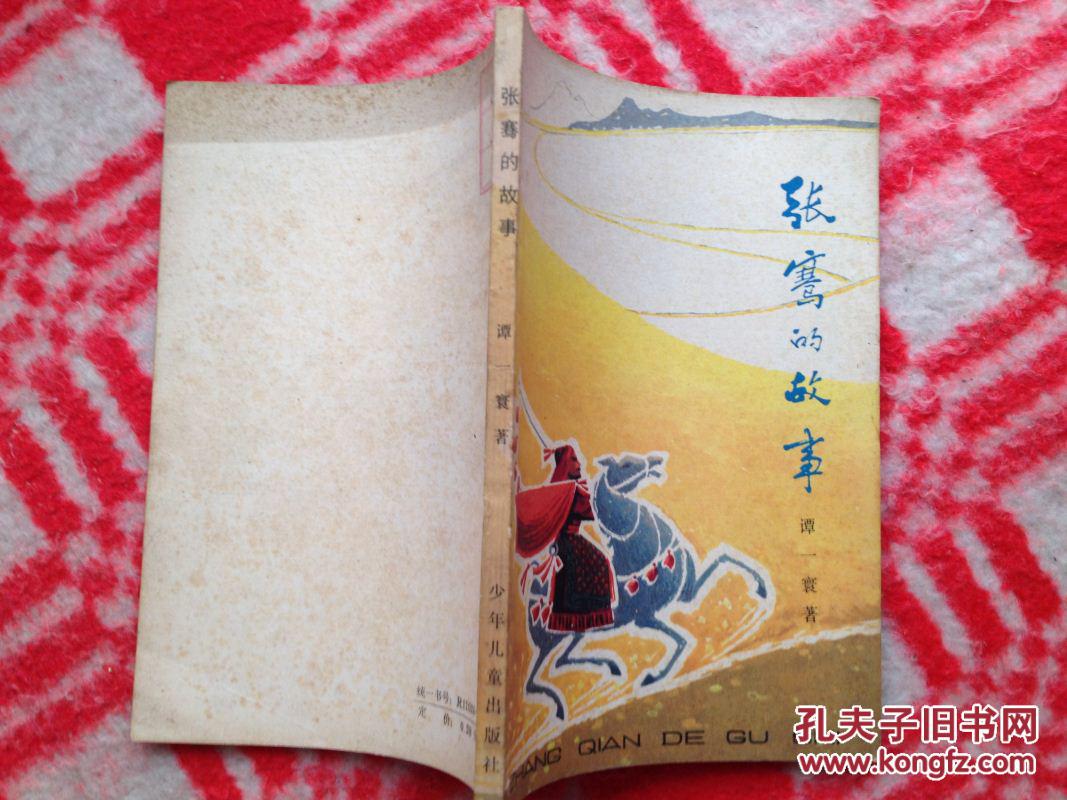 张骞的故事
谭一寰著
ZHANG QIAN DE GU
张骞的故事
谭一寰著
少年儿童出版社
统一书号:
定价:
孔夫子旧书网
www.kongfz.com